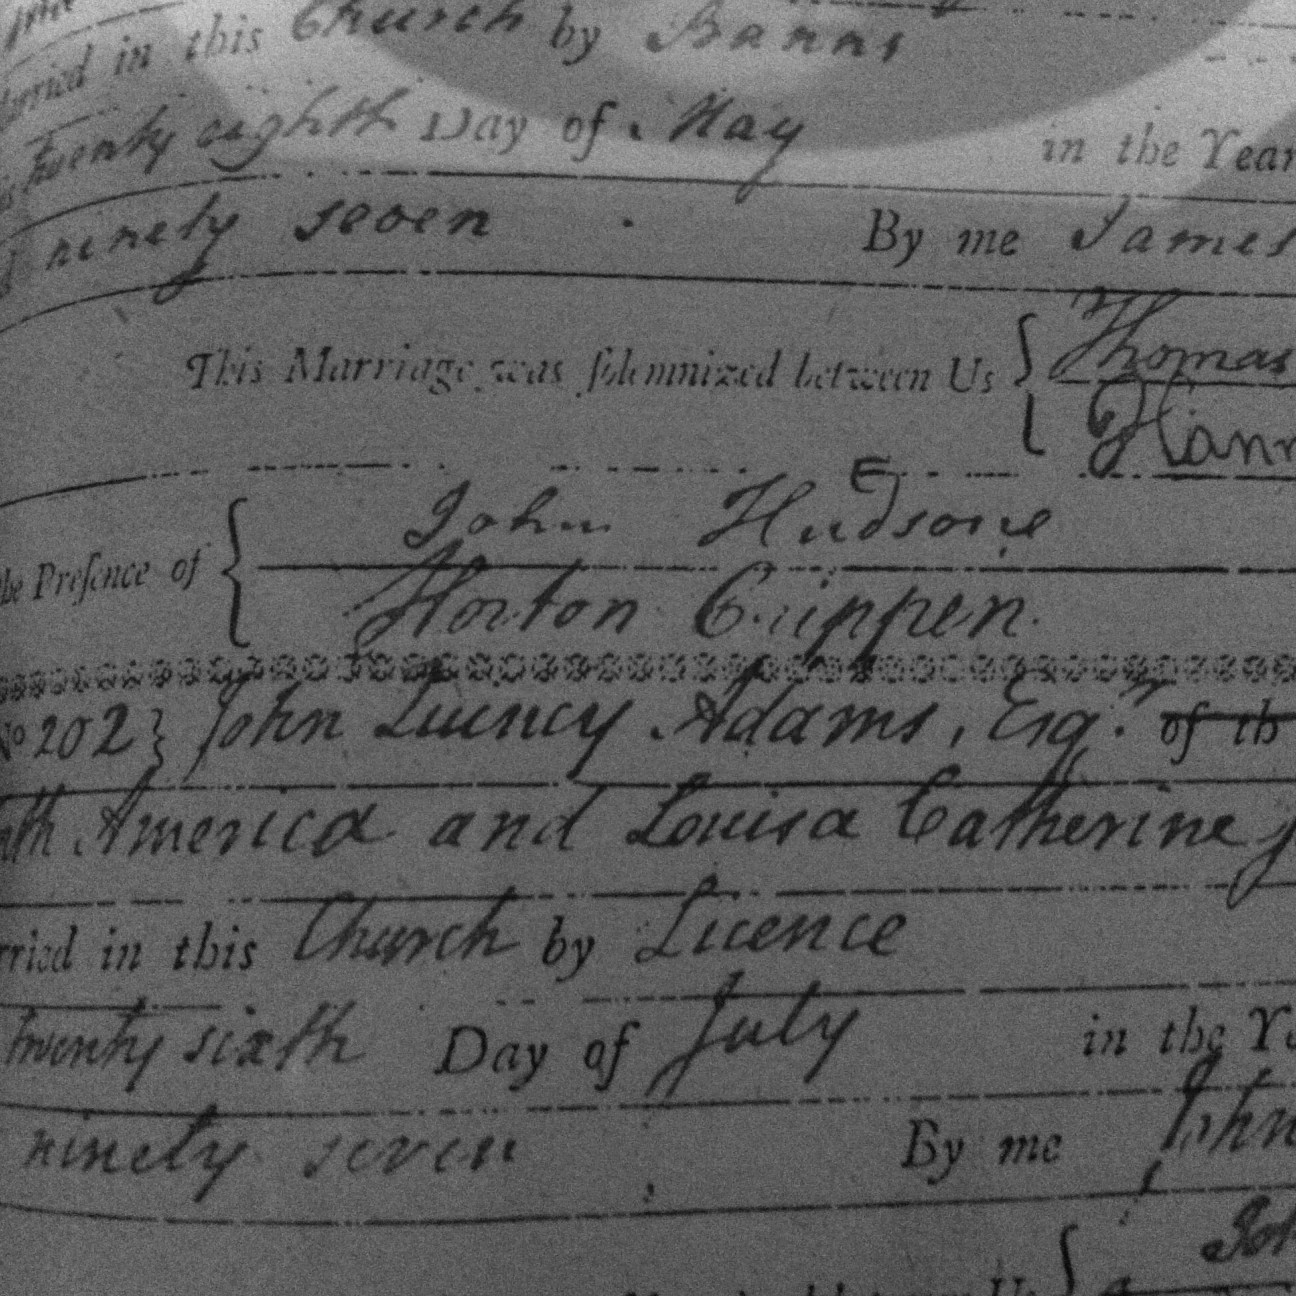 rried in this Church by Banns
twenty eighth Day of May in the Year
ninety seven By me James
This Marriage was ſolemnized between Us { Thomas
{ Hann
the Preſence of { John Hudsone
Horton Crippen.
No 202} John Quincy Adams, Esqr. of th
America and Louisa Catherine
rried in this Church by Licence
twenty sixth Day of July in the Ye
ninety seven By me John
between Us {